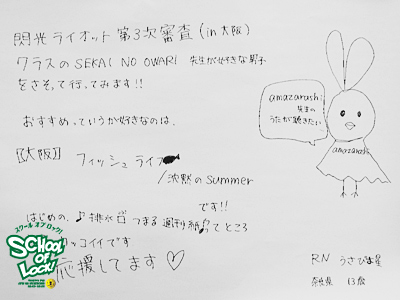 閃光ライオット 第3次審査 (in大阪)
クラスの SEKAI NO OWARI 先生が好きな男子
をさそって行ってみます!!
おすすめっていうか好きなのは、
【大阪】 フィッシュライフ
/沈黙のsummer
です!!
はじめの、♪排水口つまる週刊紙♪ってところ
カッコイイです
応援してます♡
amazarashi
先生の
うたが聴きたい
amazarashi
スクール オブ ロック!
SCHOOL
OF
LOCK!
RN うさぴょ星
奈良県 13歳